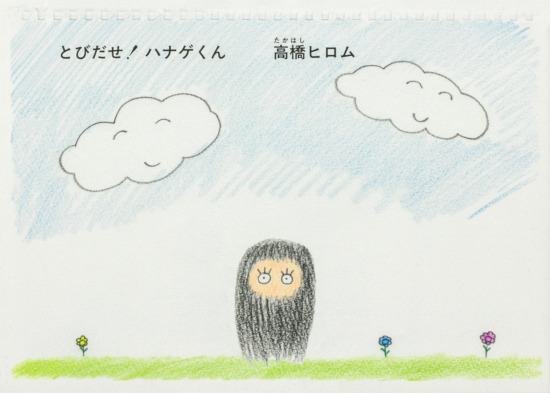 とびだせ！ハナゲくん
高橋ヒロム
たかはし